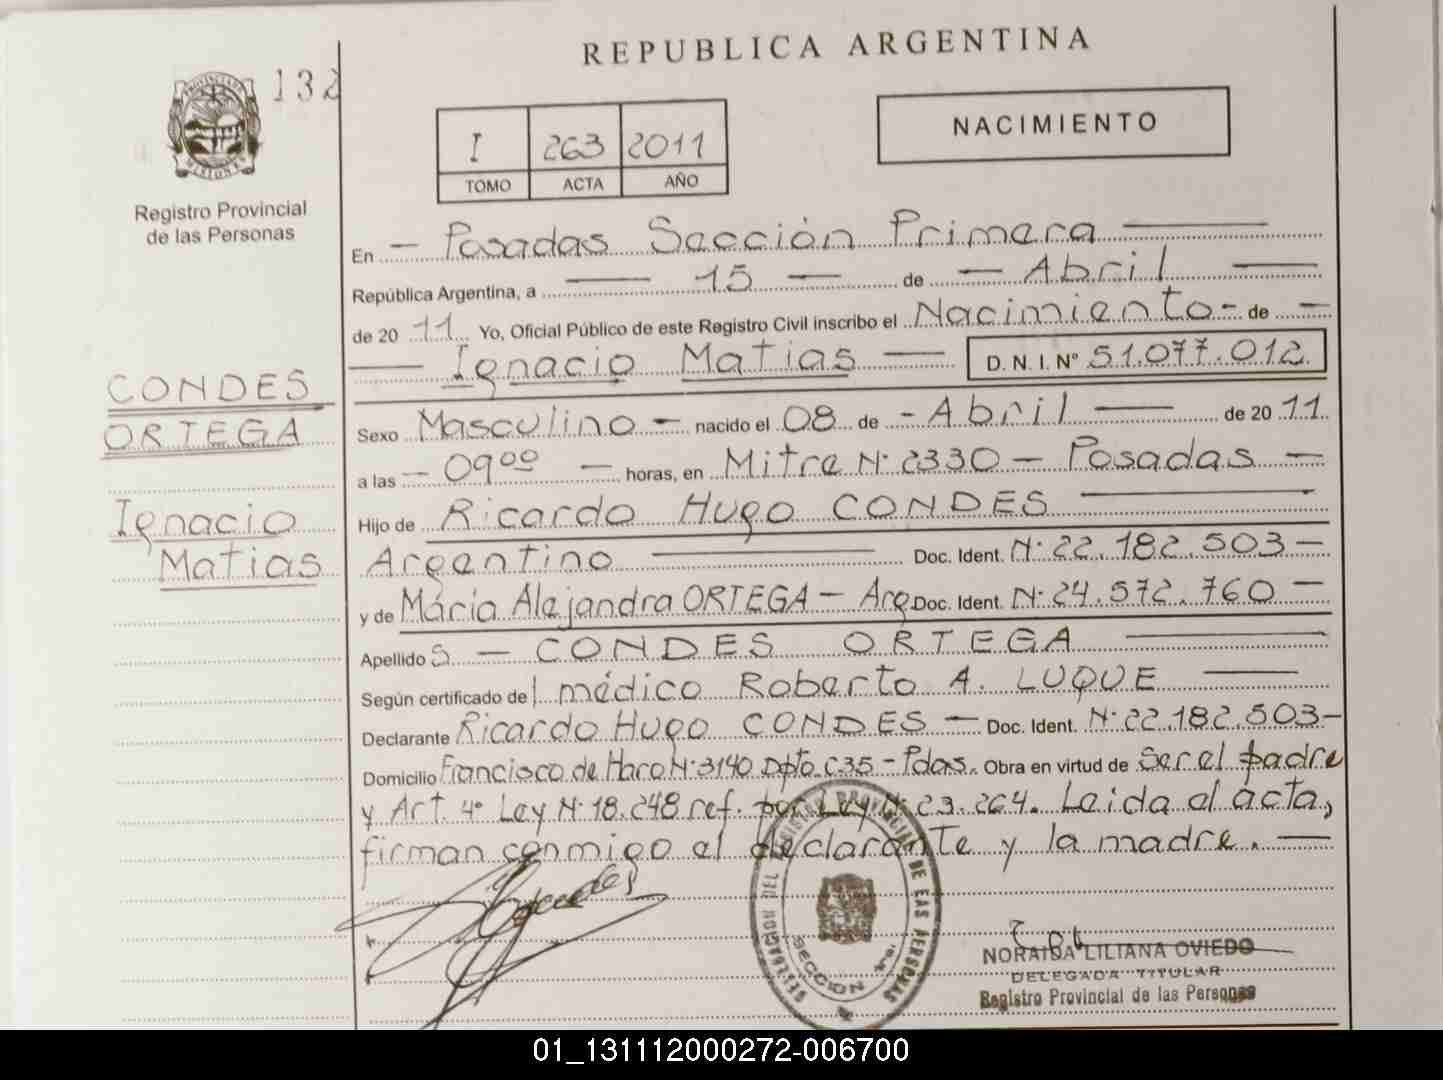 REPUBLICA ARGENTINA
132
NACIMIENTO
I 263 2011
TOMO ACTA AÑO
Registro Provincial
de las Personas
En — Posadas Sección Primera —
República Argentina, a — 15 — de — Abril —
de 20 11 Yo, Oficial Público de este Registro Civil inscribo el Nacimiento - de —
— Ignacio Matias — D. N. I. Nº 51.077.012
CONDES
ORTEGA
Ignacio
Matias
Sexo Masculino — nacido el 08 de - Abril — de 20 11
a las — 09⁰⁰ — horas, en Mitre Nº 2330 — Posadas —
Hijo de Ricardo Hugo CONDES —
Argentino — Doc. Ident. Nº 22.182.503 —
y de Mária Alejandra ORTEGA — Arg. Doc. Ident. Nº 24.572.760 —
Apellido S — CONDES ORTEGA —
Según certificado del médico Roberto A. LUQUE —
Declarante Ricardo Hugo CONDES — Doc. Ident. Nº 22.182.503 —
Domicilio Francisco de Haro Nº 3140 Dpto. C35 - Pdas. Obra en virtud de Ser el padre
y Art. 4º Ley Nº 18.248 ref. por Ley Nº 23.264. Leida el acta,
firman conmigo el declarante y la madre. —
PROVINCIAL DE LAS PERSONAS
SECCION 1ra.
NORAIDA LILIANA OVIEDO
DELEGADA TITULAR
Registro Provincial de las Personas
01_131112000272-006700